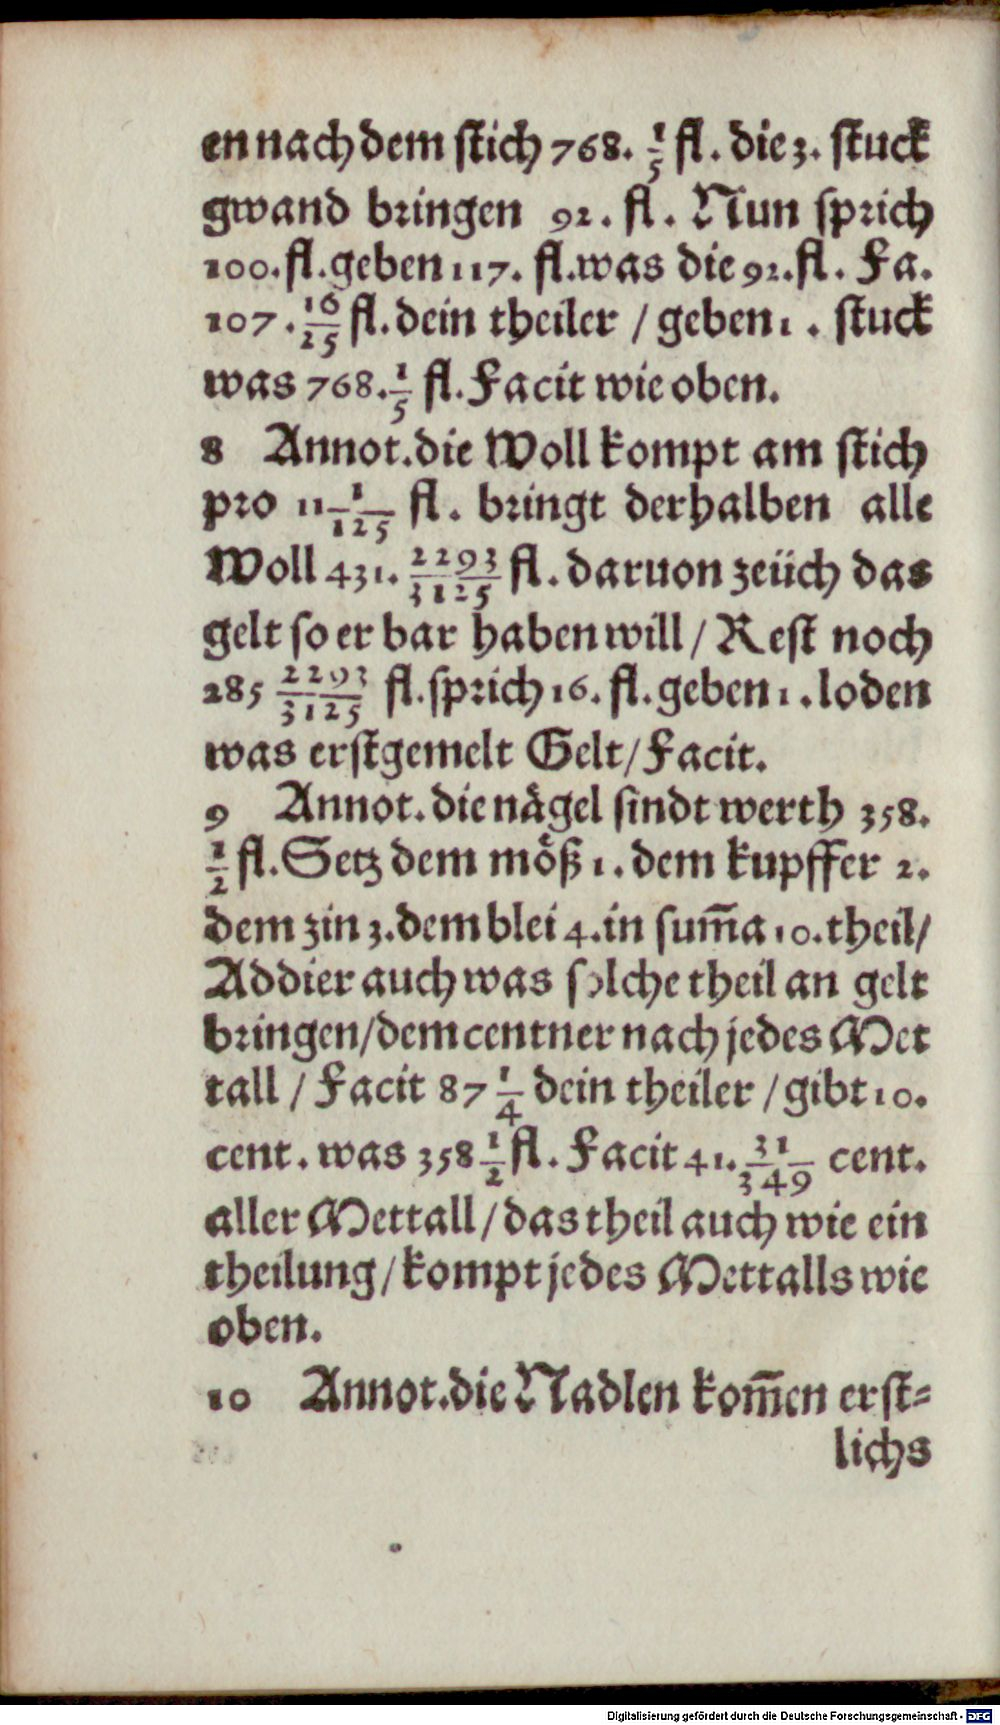 en nach dem stich 768. 1/5 fl. die 3. stuck
gwand bringen 92. fl. Nun sprich
100. fl. geben 117. fl. was die 92. fl. Fa.
107. 16/25 fl. dein theiler / geben 1. stuck
was 768. 1/5 fl. Facit wie oben.
8 Annot. die Woll kompt am stich
pro 11 1/125 fl. bringt derhalben alle
Woll 431. 2293/3125 fl. daruon zeüch das
gelt so er bar haben will / Rest noch
285 2293/3125 fl. sprich 16. fl. geben 1. loden
was erstgemelt Gelt / Facit.
9 Annot. die nägel sindt werth 358.
1/2 fl. Setz dem möß 1. dem kupffer 2.
dem zin 3. dem blei 4. in sum̄a 10. theil /
Addier auch was solche theil an gelt
bringen / dem centner nach jedes Met
tall / Facit 87 1/4 dein theiler / gibt 10.
cent. was 358 1/2 fl. Facit 41. 31/349 cent.
aller Mettall / das theil auch wie ein
theilung / kompt jedes Mettalls wie
oben.
10 Annot. die Nadlen kom̄en erst=
lichs
Digitalisierung gefördert durch die Deutsche Forschungsgemeinschaft - DFG